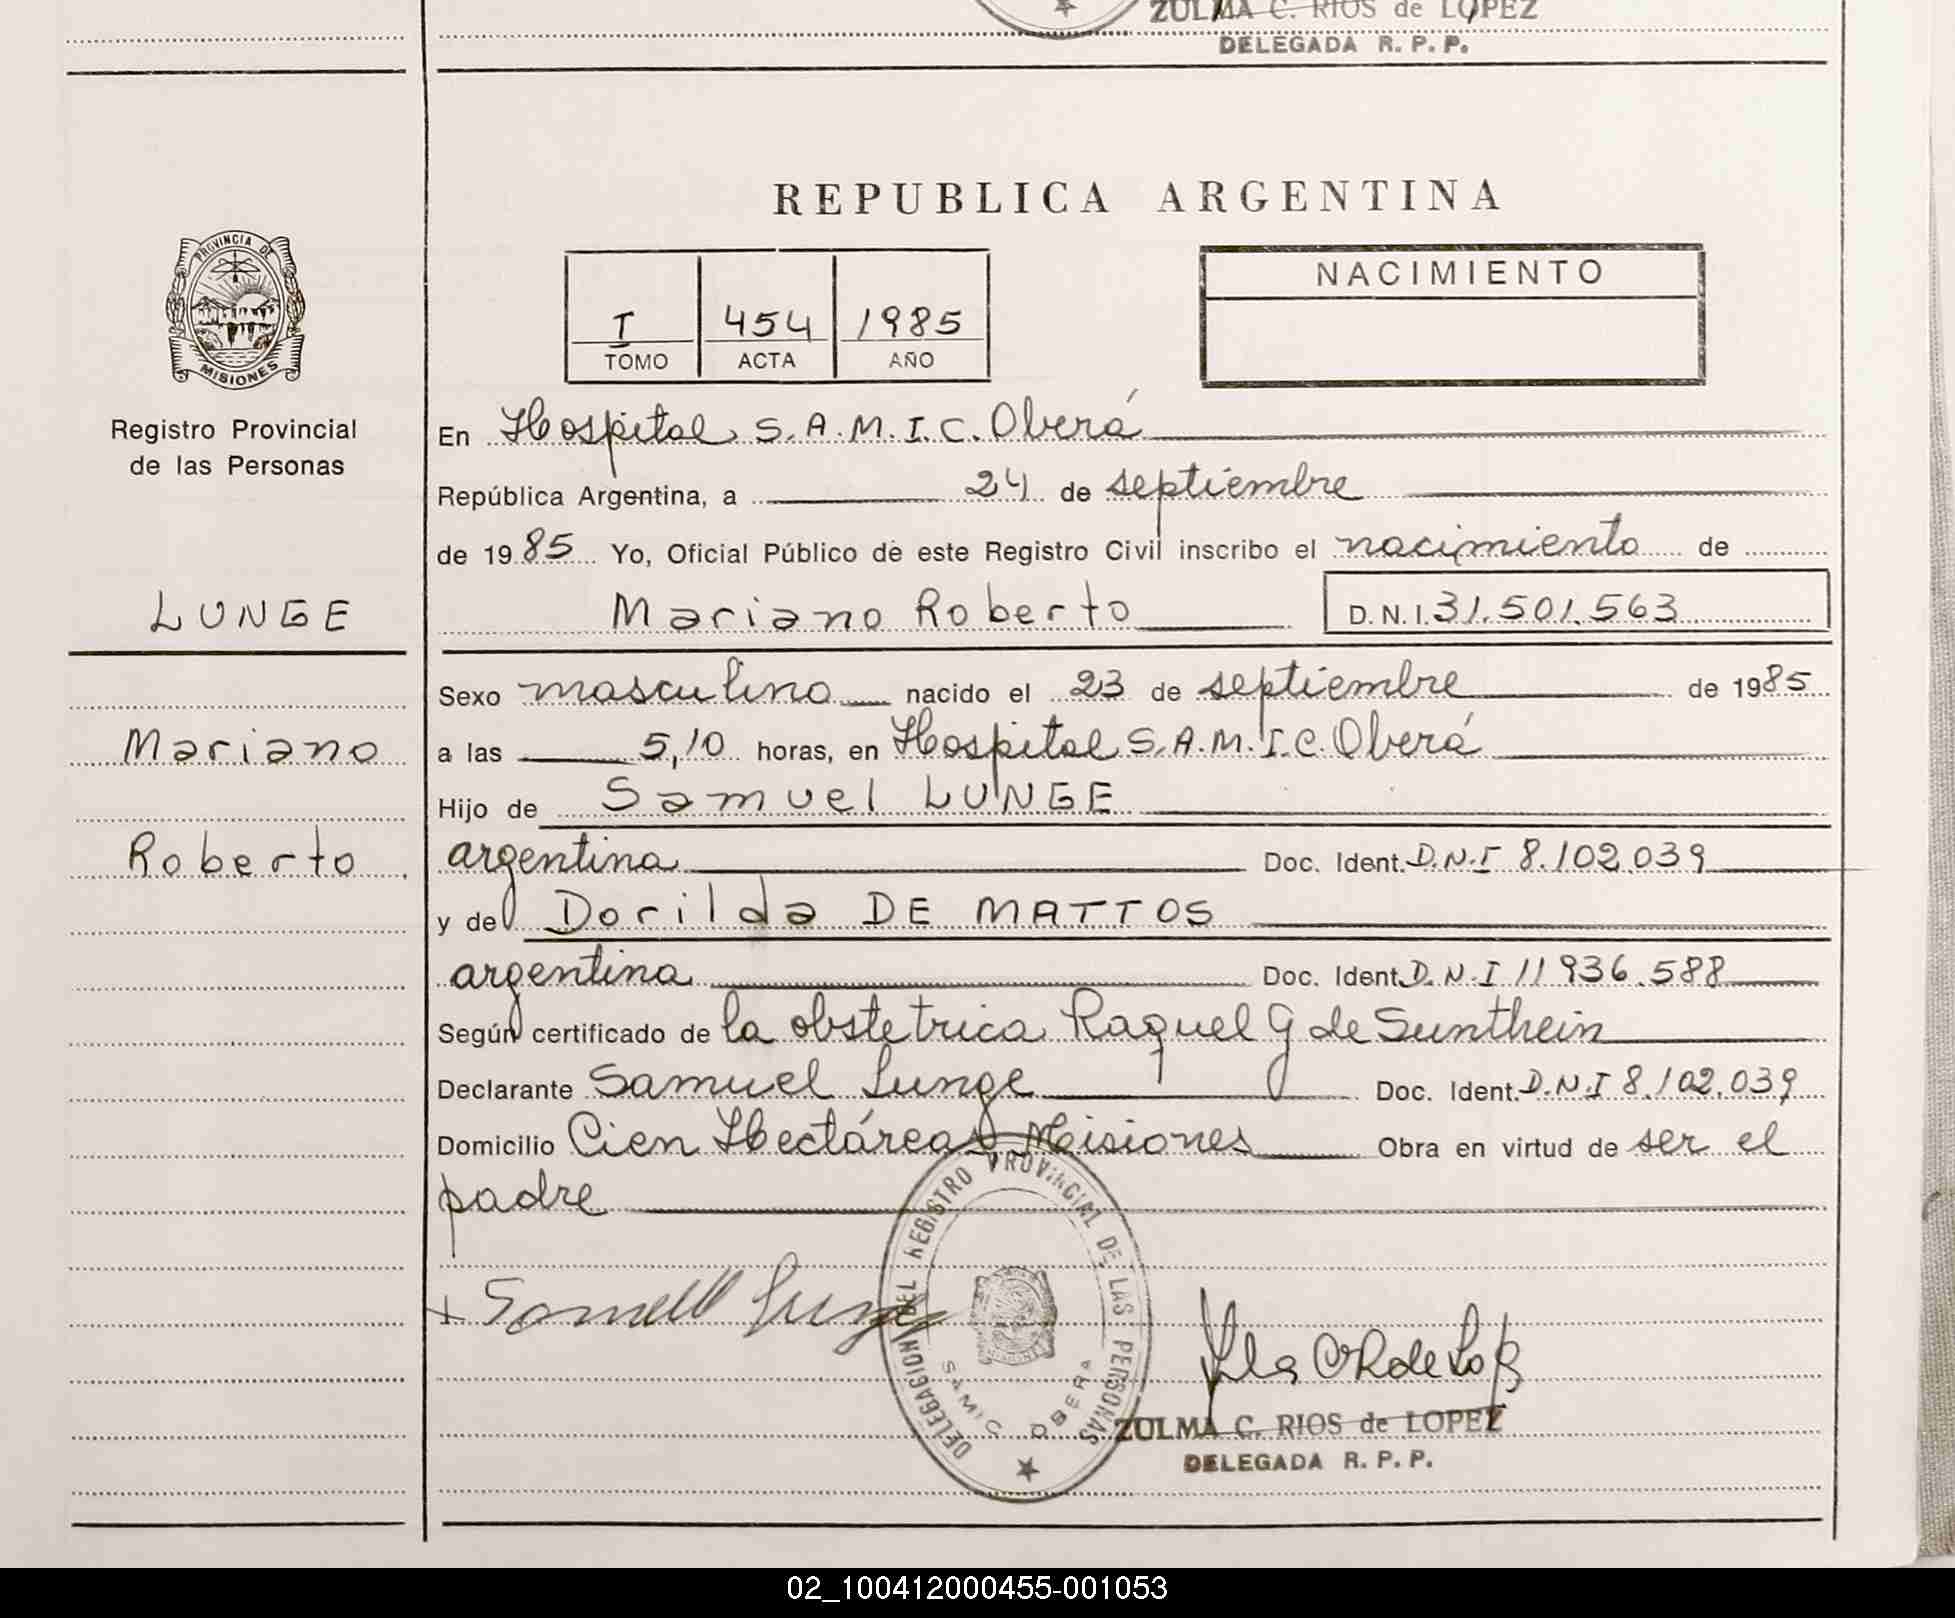 ZULMA C. RIOS de LOPEZ
DELEGADA R. P. P.
REPUBLICA ARGENTINA
PROVINCIA DE
MISIONES
Registro Provincial
de las Personas
I 454 1985
TOMO ACTA AÑO
NACIMIENTO
En Hospital S.A.M.I.C. Oberá
República Argentina, a 24 de septiembre
de 1985 Yo, Oficial Público de este Registro Civil inscribo el nacimiento de
LUNGE
Mariano Roberto D.N.I. 31.501.563
Sexo masculino nacido el 23 de septiembre de 1985
Mariano
a las 5,10 horas, en Hospital S.A.M.I.C. Oberá
Hijo de Samuel LUNGE
Roberto
argentina Doc. Ident. D.N.I 8.102.039
y de Dorilda DE MATTOS
argentina Doc. Ident. D.N.I 11936.588
Según certificado de la obstetrica Raquel G de Sunthein
Declarante Samuel Lunge Doc. Ident. D.N.I 8.102.039
Domicilio Cien Hectáreas Misiones Obra en virtud de ser el
padre
DELEGACION DEL REGISTRO PROVINCIAL DE LAS PERSONAS
SAMIC OBERA
+ Samuell Lunge
ZULMA C. RIOS de LOPEZ
DELEGADA R. P. P.
02_100412000455-001053